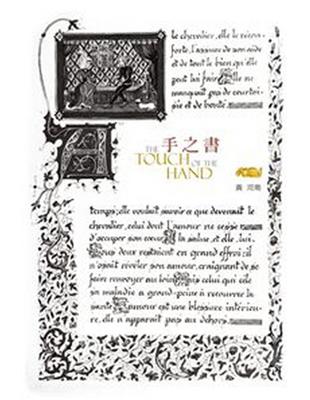 le chevalier, elle le récon-
forte, l'assure de son aide
et de tout le bien qu'elle
peut lui faire. Elle ne
manquait pas de courtoi-
sie et de bonté.
手之書
THE
TOUCH OF THE
HAND
黃
temps; elle voulait savoir ce que devenait le
chevalier, celui dont l'amour ne cesse
d'occuper son cœur. la salue, et elle, lui.
deux étaient en grand effroi: il
n'osait révéler son amour, craignant de se
faire renvoyer au loin. celui qui cèle
sa maladie a grand-peine à recouvrer la
santé. L'amour est une blessure intérieu-
re, elle n'apparaît pas au dehors.